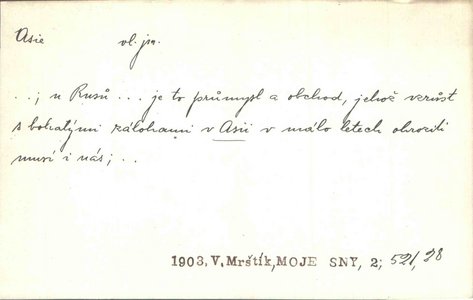 Asie vl. jm.
. . ; u Rusů . . . je to průmysl a obchod, jehož vzrůst
s bohatými zálohami v Asii v málo letech ohroziti
musí i nás; . .
1903, V. Mrštík, MOJE SNY, 2; 521, 28